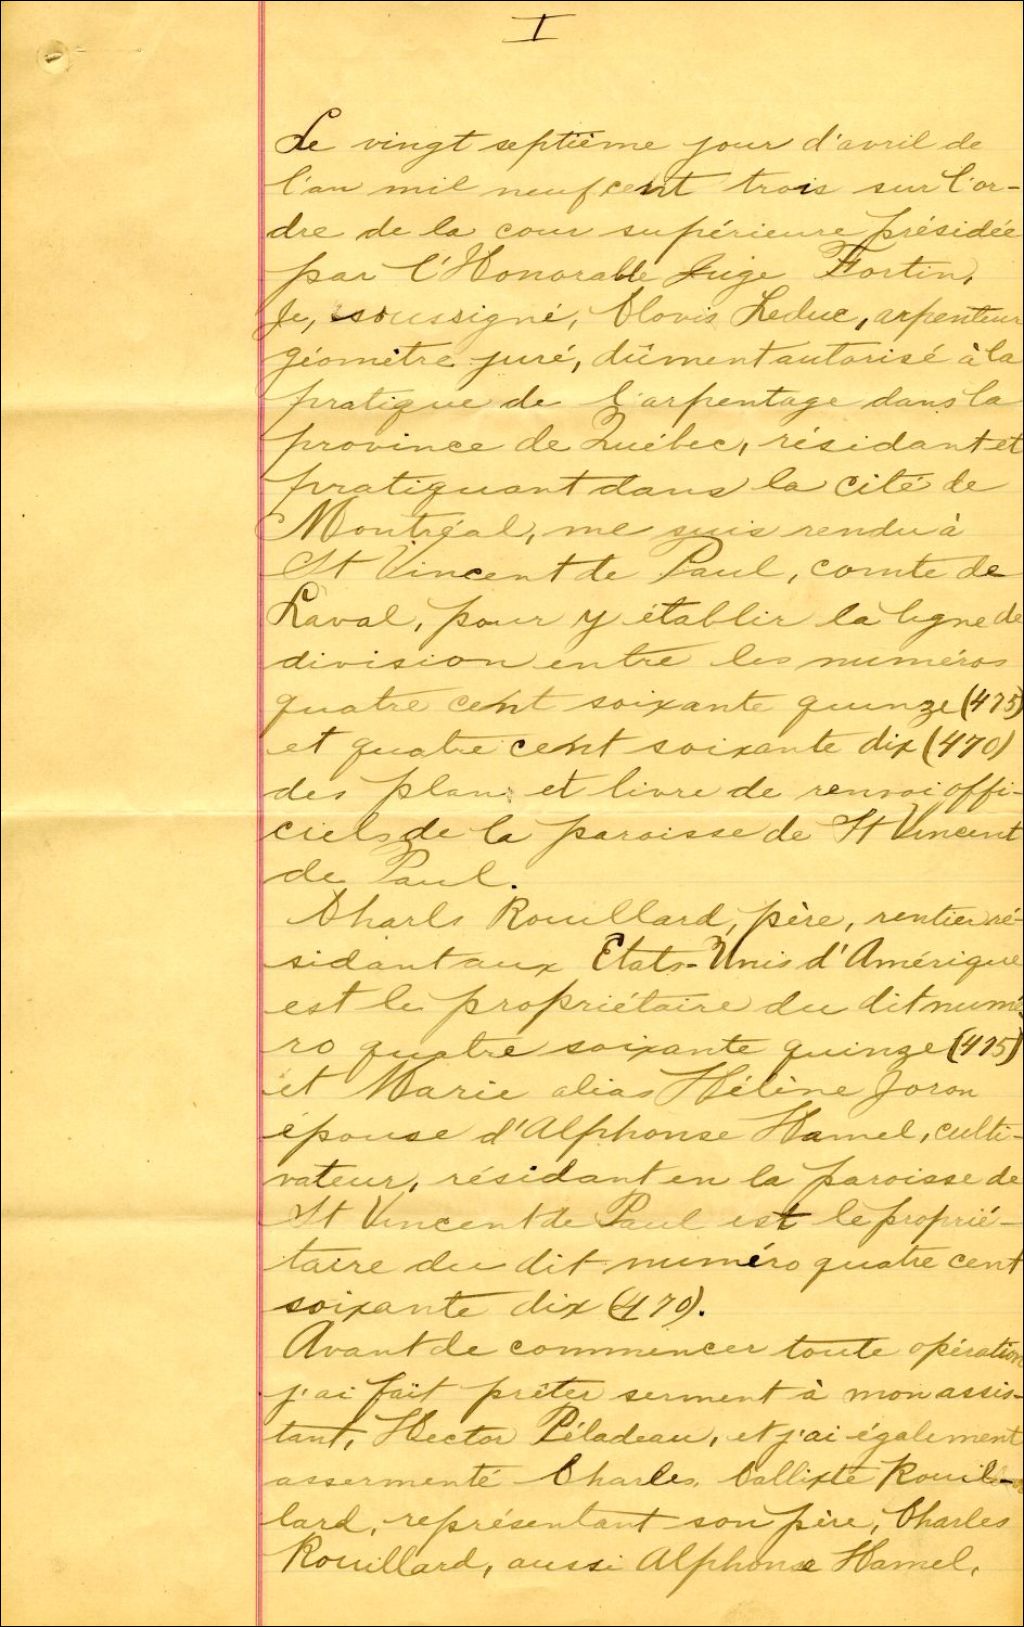 I
Le vingt septième jour d'avril de
l'an mil neuf cent trois sur l'or-
dre de la cour supérieure présidée
par l'Honorable Juge Fortin,
Je, soussigné, Clovis Leduc, arpenteur
géomètre juré, dûment autorisé à la
pratique de l'arpentage dans la
province de Québec, résidant et
pratiquant dans la cité de
Montréal, me suis rendu à
St Vincent de Paul, comte de
Laval, pour y établir la ligne de
division entre les numéros
quatre cent soixante quinze (475)
et quatre cent soixante dix (470)
des plan et livre de renvoi offi-
ciels de la paroisse de St Vincent
de Paul.
Charls Rouillard, père, rentier ré-
sidant aux Etats-Unis d'Amérique
est le propriétaire du dit numé
ro quatre soixante quinze (475)
et Marie alias Hélène Joron
épouse d'Alphonse Hamel, culti-
vateur, résidant en la paroisse de
St Vincent de Paul est le proprié-
taire du dit numéro quatre cent
soixante dix (470).
Avant de commencer toute opération
j'ai fait prêter serment à mon assis-
tant, Hector Péladeau, et j'ai également
assermenté Charles Callixte Rouil-
lard, représentant son père, Charles
Rouillard, aussi Alphonse Hamel,